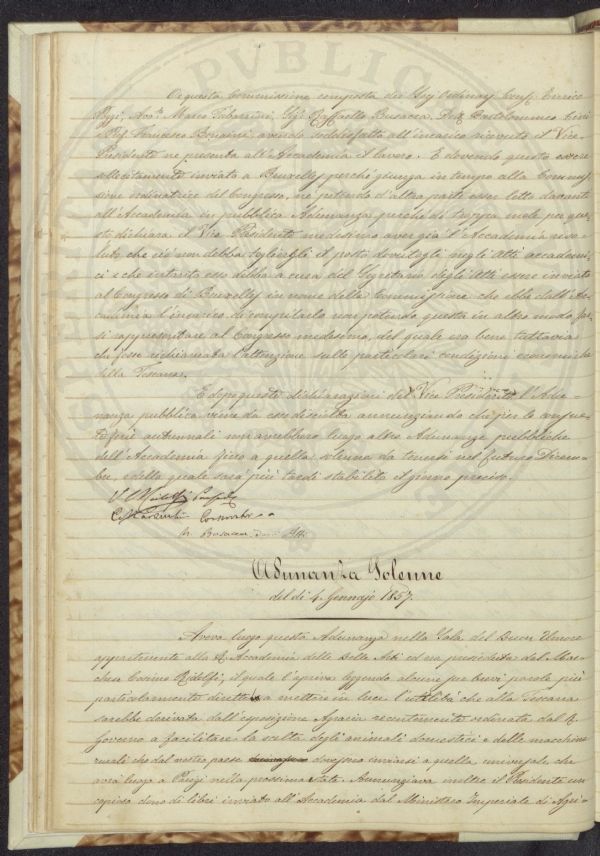 E questa Commissione composta dei Sigg. Ordinarj Conf. Enrico
Poggi, Avv. Marco Tabarrini, Sig. Raffaello Busacca, Dot. Bartolommeo Cini
Prof. Francesco Bonaini, avendo soddisfatto all'incarico ricevuto il Vice
Presidente ne presenta all'Accademia il lavoro. E dovendo questo essere
sollecitamente inviato a Bruxelles perchè giunga in tempo alla Commis-
sione ordinatrice del Congresso, nè potendo d'altra parte esser letto davanti
all'Accademia in pubblica Adunanza perchè di troppa mole per que-
sto dichiara il Vice Presidente medesimo aver già l'Accademia riso-
luto che ciò non debba togliergli il posto dovutogli negli Atti accademi-
ci e che intanto esso debba a cura del Segretario degli Atti essere inviato
al Congresso di Bruxelles in nome della Commissione che ebbe dall'Ac-
cademia l'incarico di compilarlo non potendo questa in altro modo far-
si rappresentare al Congresso medesimo, del quale era bene tuttavia
che fosse richiamata l'attenzione sulle particolari condizioni economiche
della Toscana.
E dopo queste dichiarazioni del Vice Presidente l'Adu-
nanza pubblica viene da esso disciolta annunziando che per le consue-
te ferie autunnali non avrebbero luogo altre Adunanze pubbliche
dell'Accademia fino a quella solenne da tenersi nel futuro Dicem-
bre, e della quale sarà più tardi stabilito il giorno preciso.
R. Busacca Atti
Adunanza Solenne
del dì 4. Gennajo 1857.
Aveva luogo questa Adunanza nella Sala del Buon Umore
appartenente alla R. Accademia delle Belle Arti ed era presieduta dal Mar-
chese Cosimo Ridolfi, il quale l'apriva leggendo alcune sue brevi parole più
particolarmente dirette a mettere in luce l'utilità che alla Toscana
sarebbe derivata dall'esposizione Agraria recentemente ordinata dal R.
Governo a facilitare la scelta degli animali domestici e delle macchine
rurali che dal nostro paese devono inviarsi a quella universale che
avrà luogo a Parigi nella prossima estate. Annunziava inoltre il Presidente un
copioso dono di libri inviato all'Accademia dal Ministero Imperiale di Agri-